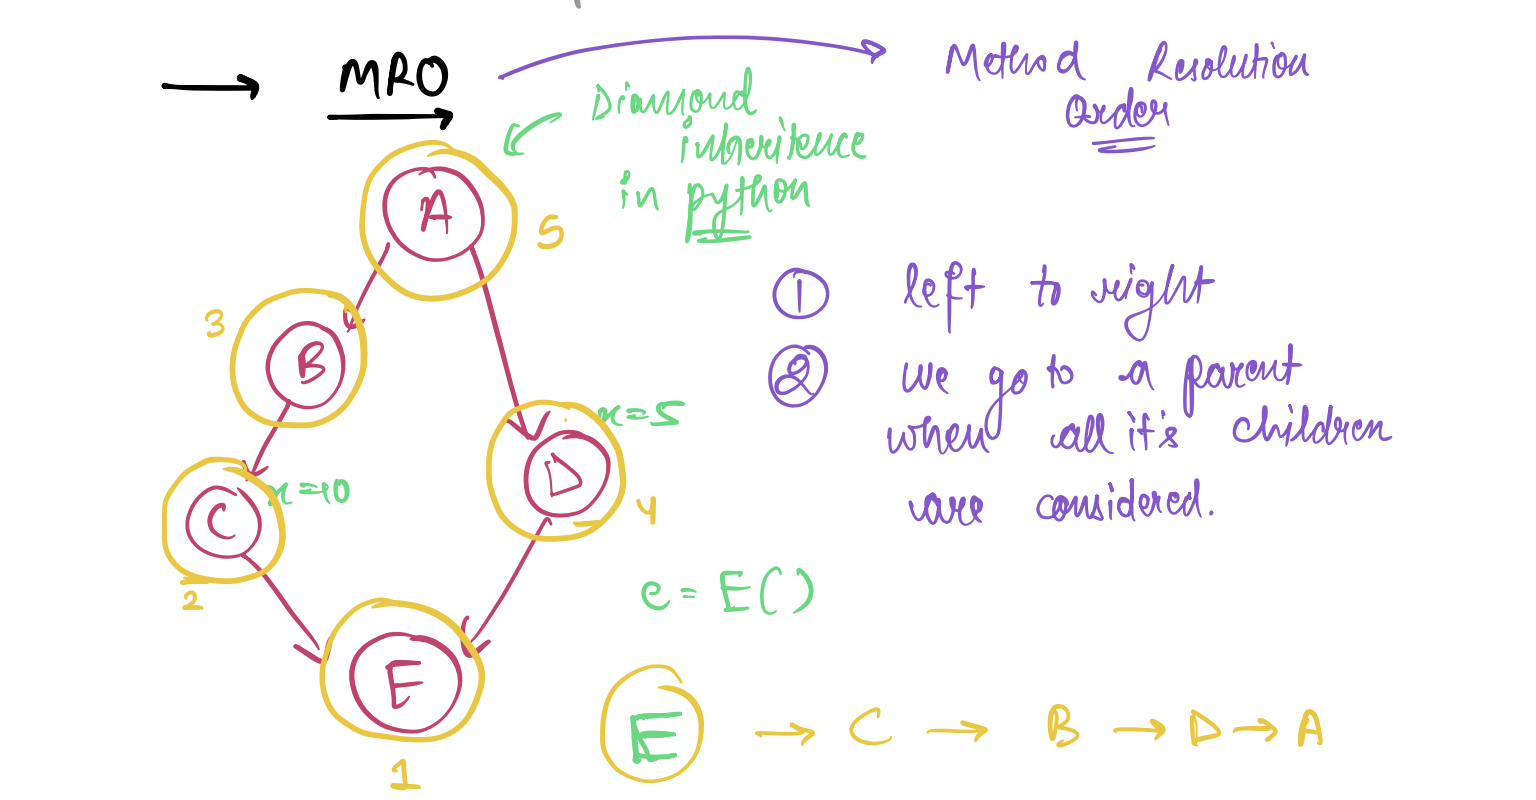 → MRO → Method Resolution
Order
Diamond
inheritence
in python
A
5
3
B
① left to right
② we go to a parent
when all it's children
are considered.
x=5
D
4
x=10
C
2
e = E()
E
1
E → C → B → D → A